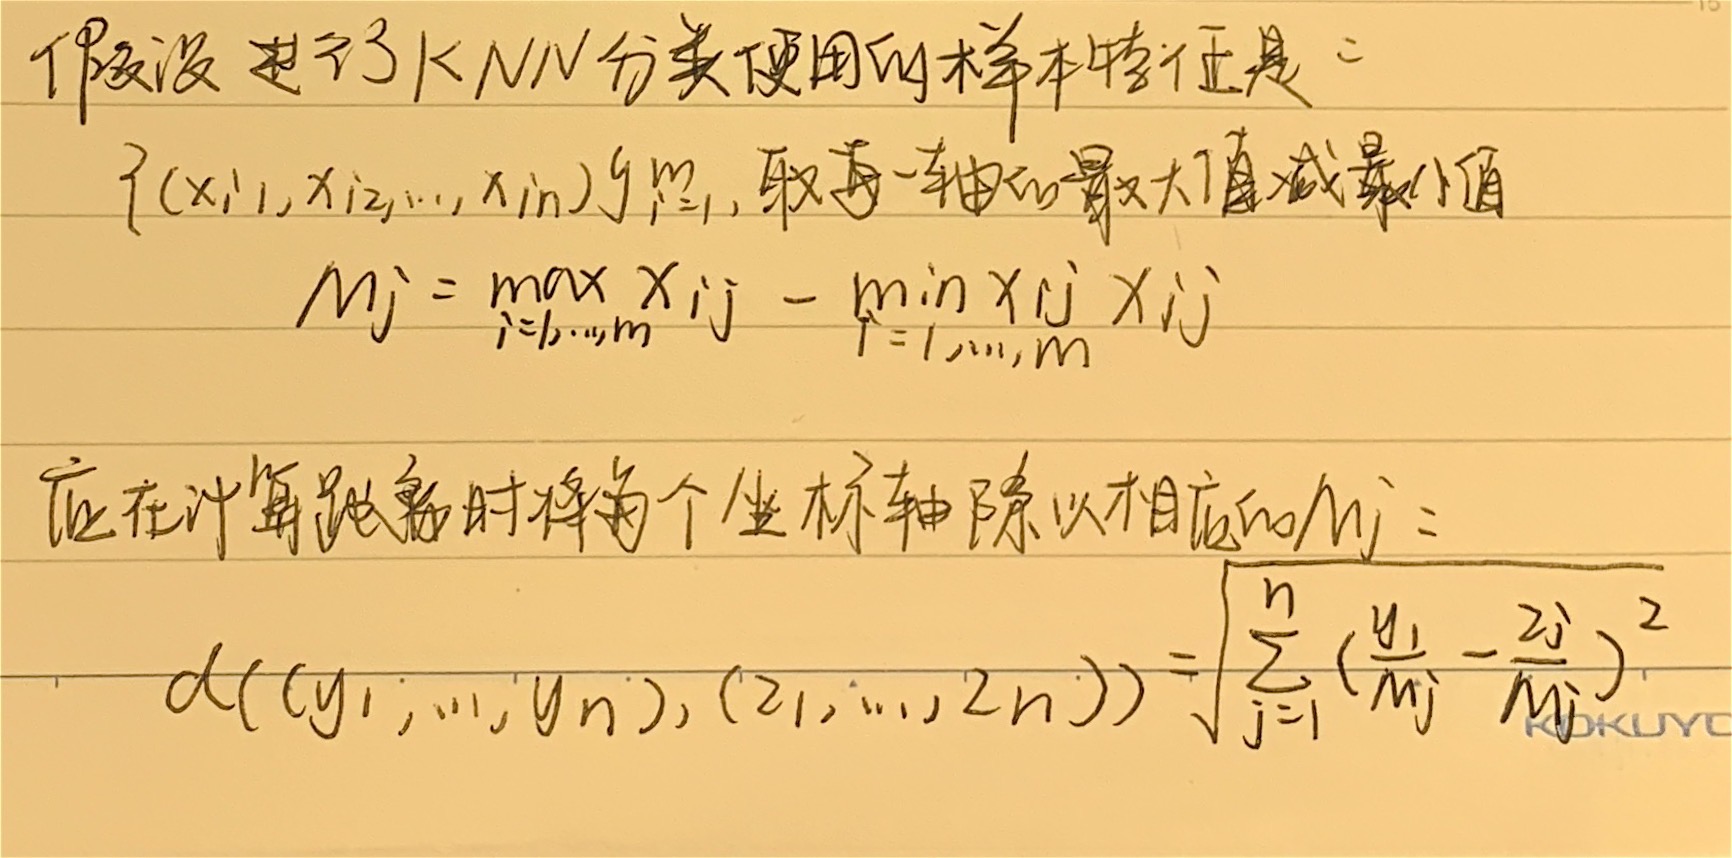 假设进行KNN分类使用的样本特征是:
{(xi1, xi2,..., xin)}ᵐᵢ₌₁, 取每一轴的最大值减最小值
Mj = max xij - min xij xij
i=1,...,m i=1,...,m
应在计算距离时将每个坐标轴除以相应的Mj:
d((y1,...,yn),(z1,...,zn)) = √∑ⁿⱼ₌₁(y1/Mj - zj/Mj)²
KOKUYO